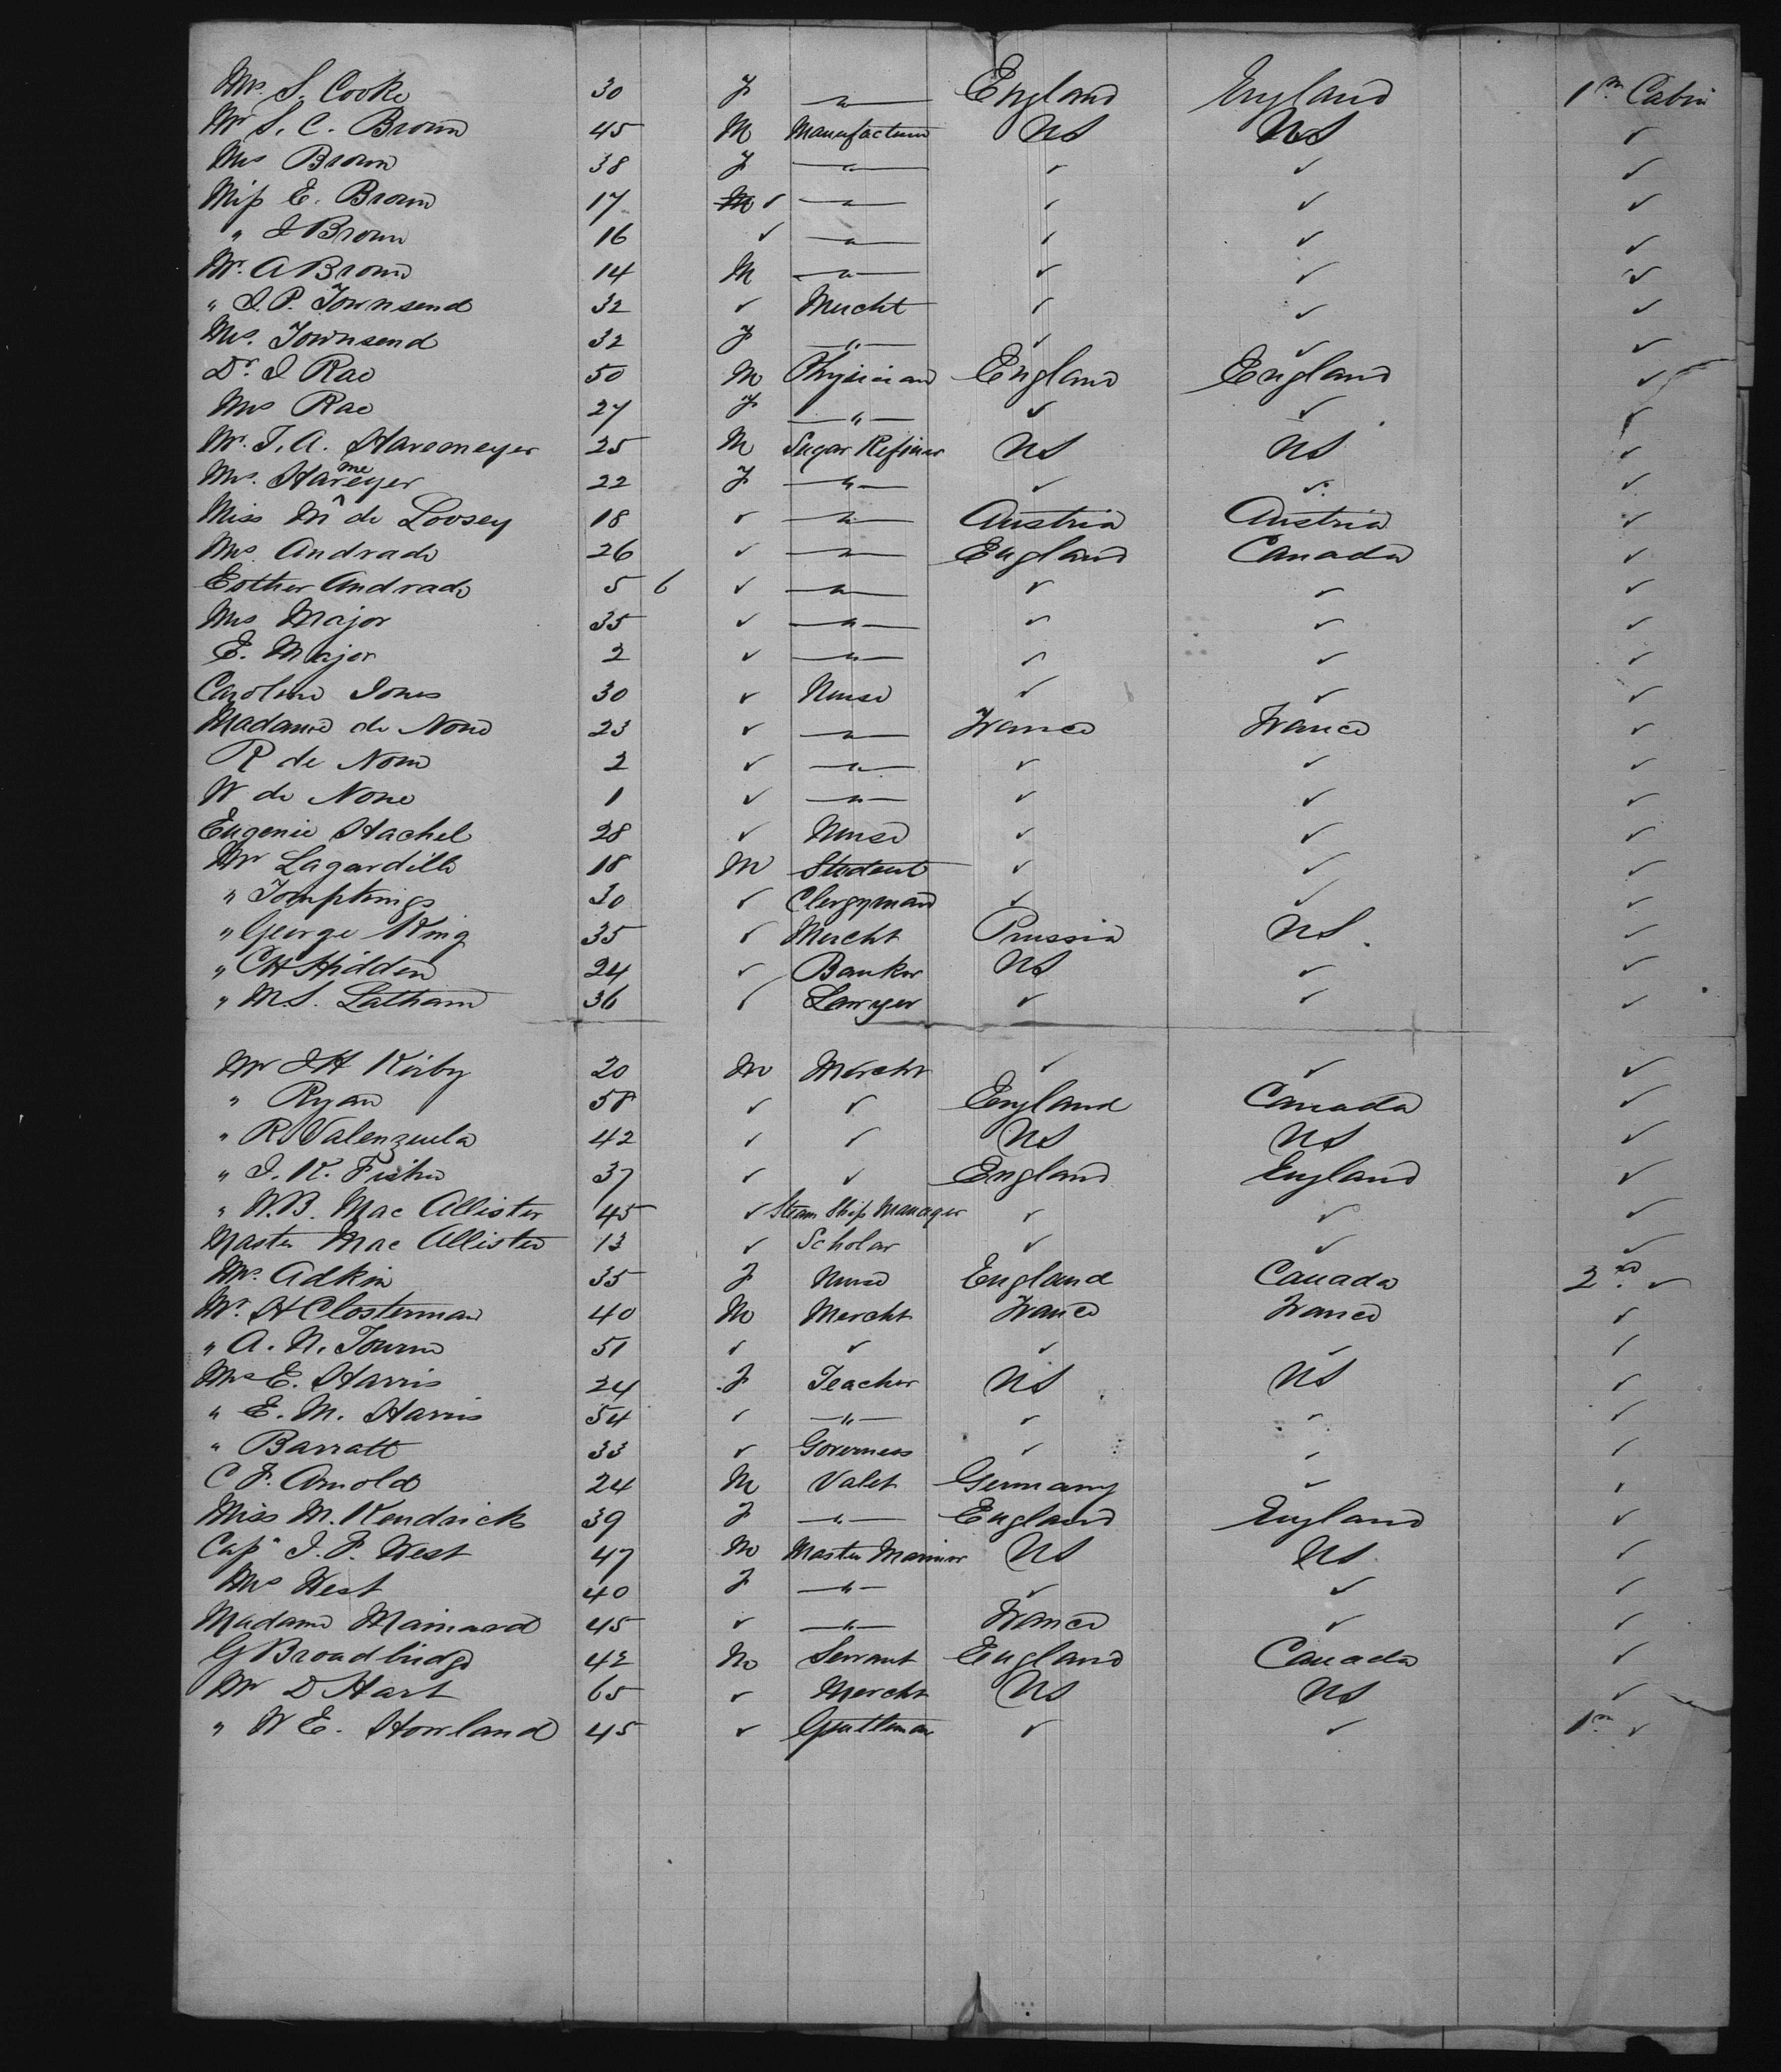 Mrs. S. Cooke 30 F —"— England England 1st Cabin
Mr S. C. Brown 45 M Manufacturer US US ✓
Mrs Brown 38 F —"— ✓ ✓ ✓
Miss E. Brown 17 M ✓ —"— ✓ ✓ ✓
" J Brown 16 ✓ —"— ✓ ✓ ✓
Mr. A Brown 14 M —"— ✓ ✓ ✓
" J. P. Townsend 32 ✓ Mercht ✓ ✓ ✓
Mrs. Townsend 32 F —"— ✓ ✓ ✓
Dr. J Rae 50 M Physician England England ✓
Mrs Rae 27 F —"— ✓ ✓ ✓
Mr. T. A. Havemeyer 25 M Sugar Refiner US US ✓
Mrs. Havemeyer 22 F —"— ✓ ✓ ✓
Miss M de Loosey 18 ✓ —"— Austria Austria ✓
Mrs Andrade 26 ✓ —"— England Canada ✓
Esther Andrade 5 6 ✓ —"— ✓ ✓ ✓
Mrs Major 35 ✓ —"— ✓ ✓ ✓
E. Major 2 ✓ —"— ✓ ✓ ✓
Caroline Jones 30 ✓ Nurse ✓ ✓ ✓
Madame de None 23 ✓ —"— France France ✓
R de None 2 ✓ —"— ✓ ✓ ✓
W de None 1 ✓ —"— ✓ ✓ ✓
Eugenie Hachel 28 ✓ Nurse ✓ ✓ ✓
Mr Lagardille 18 M Student ✓ ✓ ✓
" Tompkings 30 ✓ Clergyman ✓ ✓ ✓
" George King 35 ✓ Mercht Prussia US ✓
" CH Hidden 24 ✓ Banker US ✓ ✓
" M.S. Latham 36 ✓ Lawyer ✓ ✓ ✓
Mr J H Kirby 20 M Mercht ✓ ✓ ✓
" Ryan 58 ✓ ✓ England Canada ✓
" R Valenzuela 42 ✓ ✓ US US ✓
" J. K. Fisher 37 ✓ ✓ England England ✓
" W.B. Mac Allister 45 ✓ Steam Ship Manager ✓ ✓ ✓
Master Mac Allister 13 ✓ Scholar ✓ ✓ ✓
Mrs. Adkin 35 F Nurse England Canada 2nd ✓
Mr. H Closterman 40 M Mercht France France ✓
" A. N. 51 ✓ ✓ ✓ ✓ ✓
Mrs E. Harris 24 F Teacher US US ✓
" E. M. Harris 54 ✓ —"— ✓ ✓ ✓
" Barratt 33 ✓ Governess ✓ ✓ ✓
C F. Arnold 24 M Valet Germany ✓ ✓
Miss M. Kendrick 39 F —"— England England ✓
Capn J. P. West 47 M Master Mariner US US ✓
Mrs West 40 F —"— ✓ ✓ ✓
Madame Mainard 45 ✓ —"— France ✓ ✓
G Broadbridge 42 M Servant England Canada ✓
Mr D Hart 65 ✓ Mercht US US ✓
" W E. Howland 45 ✓ Gentleman ✓ ✓ 1st ✓